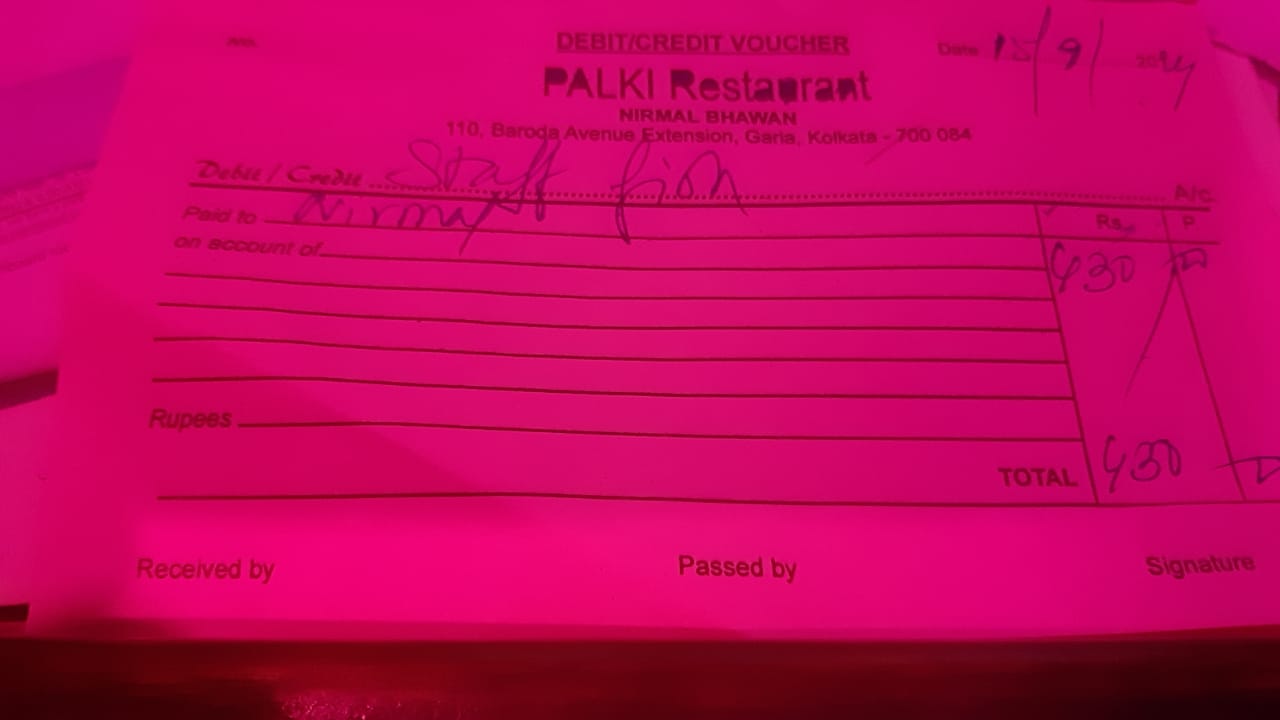 No.
DEBIT/CREDIT VOUCHER
Date 15/9/2024
PALKI Restaurant
NIRMAL BHAWAN
110, Baroda Avenue Extension, Garia, Kolkata - 700 084
Debit / Credit Staff fish A/c.
Paid to Nirmal Rs. P
on account of 430
Rupees
TOTAL 430
Received by Passed by Signature